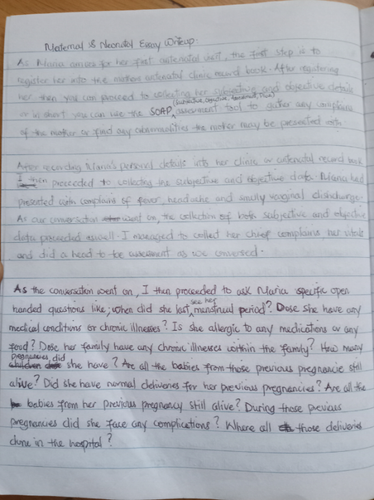 Maternal & Neonatal Essay Writeup.
As Maria arrives for her first antenatal visit, the first step is to
register her into the mothers antenatal clinic record book. After registering
her, then you can proceed to collecting her subjective and objective details
or in short you can use the SOAP (subjective, objective, assessment, plan) assessment tool to gather any complains
of the mother or find any abnormalities the mother may be presented with
After recording Maria's personal details into her clinic or antenatal record book
I then proceeded to collecting the subjective and objective data. Maria had
presented with complaint of fever, headache and smelly vaginal discharge.
As our conversation went on, the collection of both subjective and objective
data proceeded as well. I managed to collect her chief complains, her vitals
and did a head to toe assessment as we conversed.
As the conversation went on, I then proceeded to ask Maria specific open
handed questions like; when did she last see her menstrual period? Dose she have any
medical conditions or chronic illnesses? Is she allergic to any medications or any
food? Dose her family have any chronic illnesses within the family? How many
pregnancies did she have? Are all the babies from those previous pregnancie still
alive? Did she have normal deliveries for her previous pregnancies? Are all the
babies from her previous pregnancy still alive? During those previous
pregnancies did she face any complications? Where all those deliveries
done in the hospital?